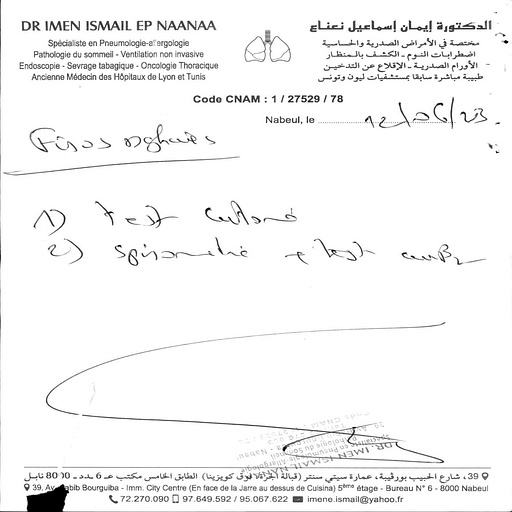 DR IMEN ISMAIL EP NAANAA
Spécialiste en Pneumologie-allergologie
Pathologie du sommeil - Ventilation non invasive
Endoscopie - Sevrage tabagique - Oncologie Thoracique
Ancienne Médecin des Hôpitaux de Lyon et Tunis
الدكتورة إيمان إسماعيل نعناع
مختصة في الأمراض الصدرية والحساسية
اضطرابات النوم - الكشف بالمنظار
الأورام الصدرية - الإقلاع عن التدخين
طبيبة مباشرة سابقا بمستشفيات ليون وتونس
Code CNAM : 1 / 27529 / 78
Nabeul, le 12/06/23
1) test cutané
2) spirometrie + test
DR. IMEN ISMAIL
39، شارع الحبيب بورقيبة، عمارة سيتي سنتر (قبالة الجرة، فوق كويزينا) الطابق الخامس مكتب عـ 6 ـدد - 8000 نابل
39, Av. Habib Bourguiba - Imm. City Centre (En face de la Jarre au dessus de Cuisina) 5ème étage - Bureau N° 6 - 8000 Nabeul
72.270.090 97.649.592 / 95.067.622 imene.ismail@yahoo.fr